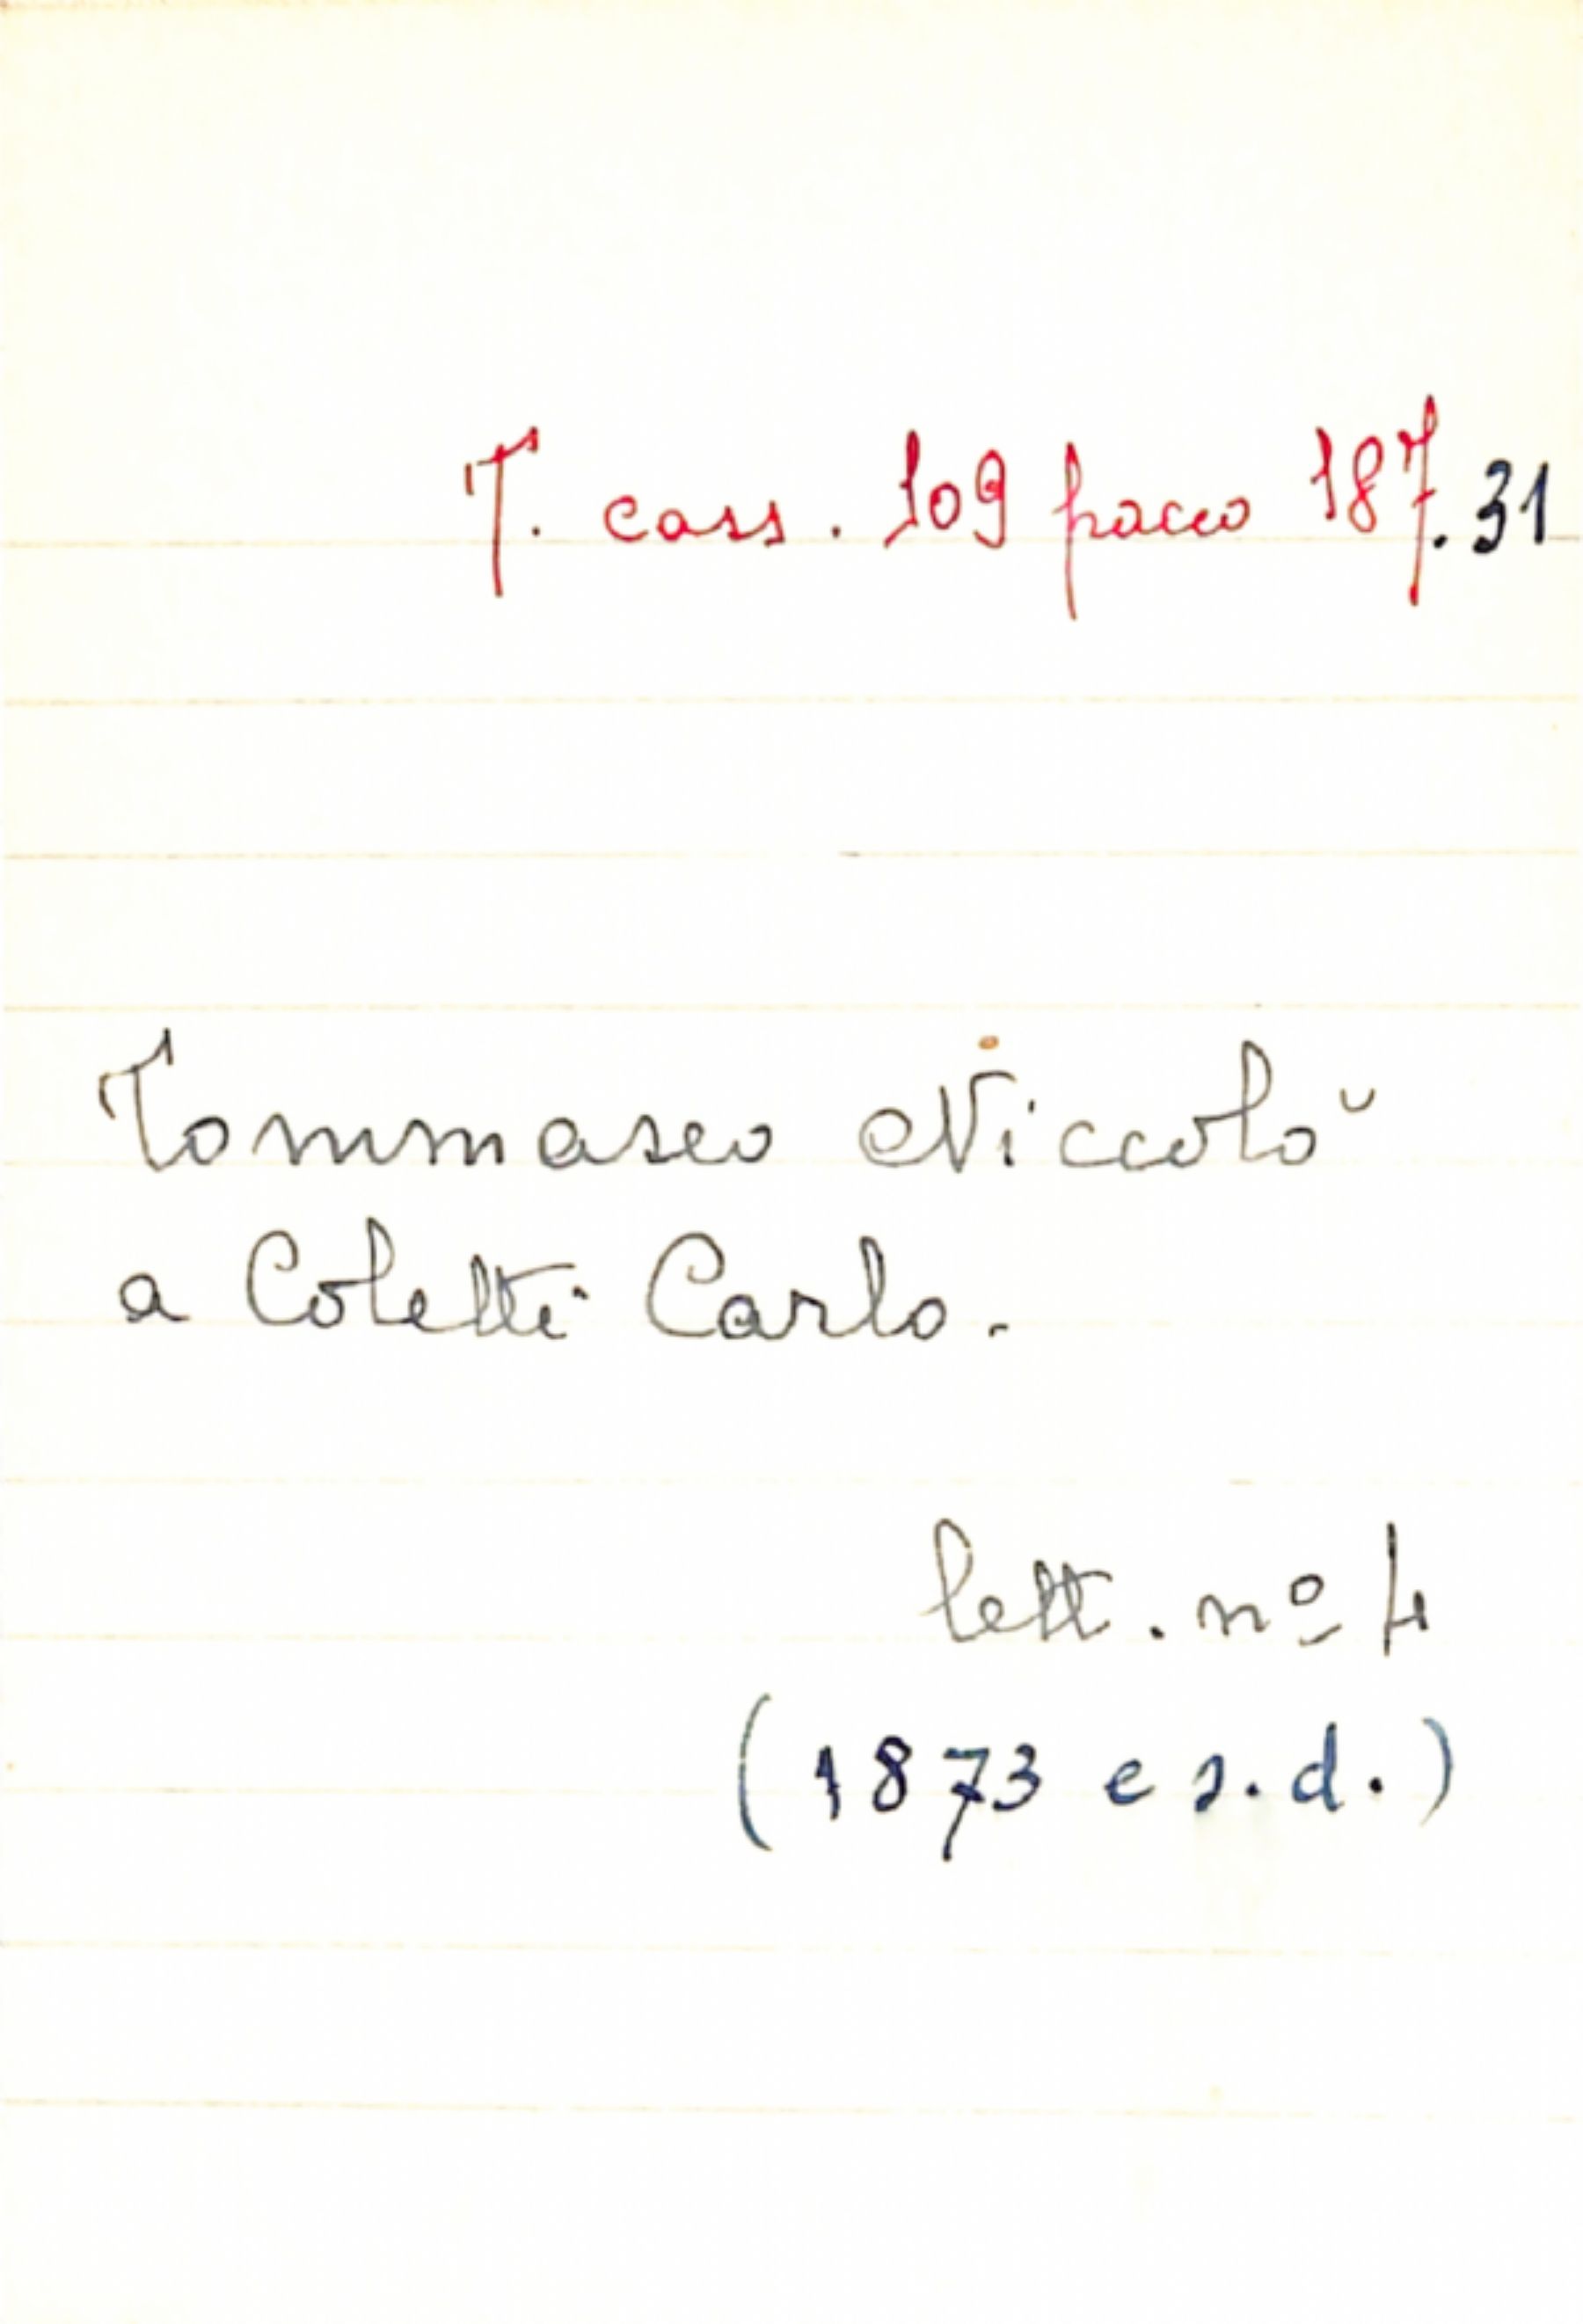 T. cass. 109 pacco 187.31
Tommaseo Niccolò
a Coletti Carlo.
lett. nº 4
(1873 e s.d.)